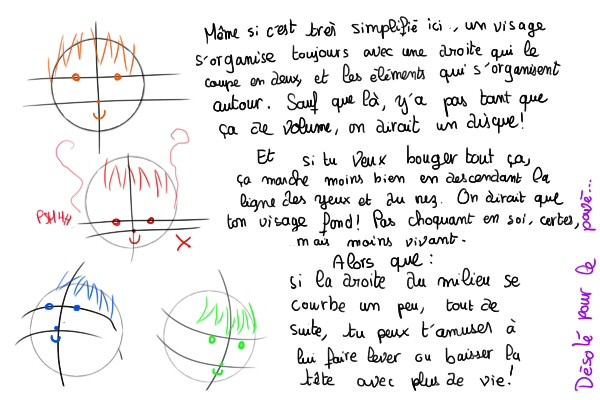 Même si c'est très simplifié ici, un visage
s'organise toujours avec une droite qui le
coupe en deux, et les éléments qui s'organisent
autour. Sauf que là, y'a pas tant que
ça de volume, on dirait un disque!
Et si tu veux bouger tout ça,
ça marche moins bien en descendant la
ligne des yeux et du nez. On dirait que
ton visage fond! Pas choquant en soi, certes,
mais moins vivant.
Alors que:
si la droite du milieu se
courbe un peu, tout de
suite, tu peux t'amuser à
lui faire lever ou baisser la
tête avec plus de vie!
Désolé pour le pavé...